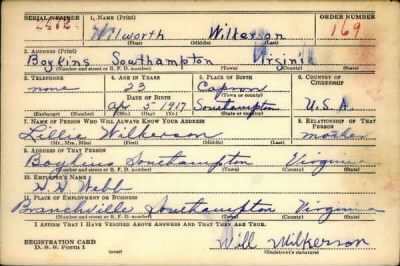 SERIAL NUMBER 1. NAME (Print) ORDER NUMBER
2482 Wilworth Wilkerson 169
(First) (Middle) (Last)
2. ADDRESS (Print)
Boykins Southampton Virginia
(Number and street or R. F. D. number) (Town) (County) (State)
3. TELEPHONE 4. AGE IN YEARS 5. PLACE OF BIRTH 6. COUNTRY OF CITIZENSHIP
none 23 Capron
DATE OF BIRTH (Town or county)
Apr 5 1917 Southampton U.S.A.
(Exchange) (No.) (Mo.) (Day) (Yr.) (State or country)
7. NAME OF PERSON WHO WILL ALWAYS KNOW YOUR ADDRESS 8. RELATIONSHIP OF THAT PERSON
Lillie Wilkerson mother
(Mr., Mrs., Miss) (First) (Middle) (Last)
9. ADDRESS OF THAT PERSON
Boykins Southampton Virginia
(Number and street or R. F. D. number) (Town) (County) (State)
10. EMPLOYER'S NAME
Webb
11. PLACE OF EMPLOYMENT OR BUSINESS
Branchville Southampton Virginia
(Number and street or R. F. D. number) (Town) (County) (State)
I AFFIRM THAT I HAVE VERIFIED ABOVE ANSWERS AND THAT THEY ARE TRUE.
REGISTRATION CARD Will Wilkerson
D. S. S. Form 1 (Registrant's signature)